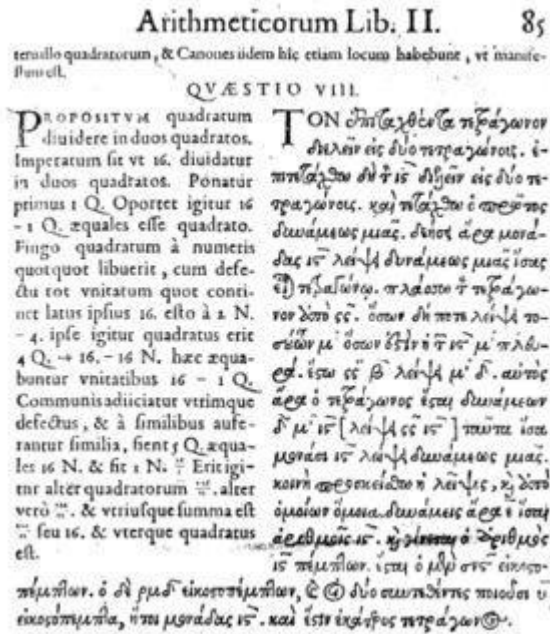 Arithmeticorum Lib. II. 85
teruallo quadratorum, & Canones iidem hîc etiam locum habebunt, vt manife-
stum est.
QVÆSTIO VIII.
PROPOSITVM quadratum
diuidere in duos quadratos.
Imperatum sit vt 16. diuidatur
in duos quadratos. Ponatur
primus 1 Q. Oportet igitur 16
- 1 Q. æquales esse quadrato.
Fingo quadratum à numeris
quotquot libuerit, cum defe-
ctu tot vnitatum quot conti-
net latus ipsius 16. esto à 2 N.
- 4. ipse igitur quadratus erit
4 Q. + 16. - 16 N. hæc æqua-
buntur vnitatibus 16 - 1 Q.
Communis adiiciatur vtrimque
defectus, & à similibus aufe-
rantur similia, fient 5 Q. æqua-
les 16 N. & fit 1 N. Erit igi-
tur alter quadratorum alter
verò & vtriusque summa est
seu 16. & vterque quadratus
est.
ΤΟΝ ἐπιταχθέντα τετράγωνον
διελεῖν εἰς δύο τετραγώνους. ἐ-
πιτετάχθω δὴ τὸν ιϛ διελεῖν εἰς δύο τε-
τραγώνους. καὶ τετάχθω ὁ πρῶτος
δυνάμεως μιᾶς. δεήσει ἄρα μονά-
δας ιϛ λείψει δυνάμεως μιᾶς ἴσας
εἶναι τετραγώνῳ. πλάσσω τὸν τετράγω-
νον ἀπὸ ϛϛ. ὅσων δή ποτε λείψει το-
σούτων μ° ὅσων ἐστὶν ἡ τῶν ιϛ μ° πλευ-
ρά. ἔστω ϛϛ β λείψει μ° δ. αὐτὸς
ἄρα ὁ τετράγωνος ἔσται δυνάμεων
δ μ° ιϛ [λείψει ϛϛ ιϛ] ταῦτα ἴσα
μονάσι ιϛ λείψει δυνάμεως μιᾶς.
κοινὴ προσκείσθω ἡ λεῖψις, καὶ ἀπὸ
ὁμοίων ὅμοια. δυνάμεις ἄρα ε ἴσαι
ἀριθμοῖς ιϛ. καὶ γίνεται ὁ ἀριθμὸς
ιϛ πέμπτων. ἔσται ὁ μὲν σνϛ εἰκοσο-
πέμπτων. ὁ δὲ ρμδ εἰκοσοπέμπτων, καὶ οἱ δύο συντεθέντες ποιοῦσι υ
εἰκοσόπεμπτα, ἤτοι μονάδας ιϛ. καὶ ἔστιν ἑκάτερος τετράγωνος.